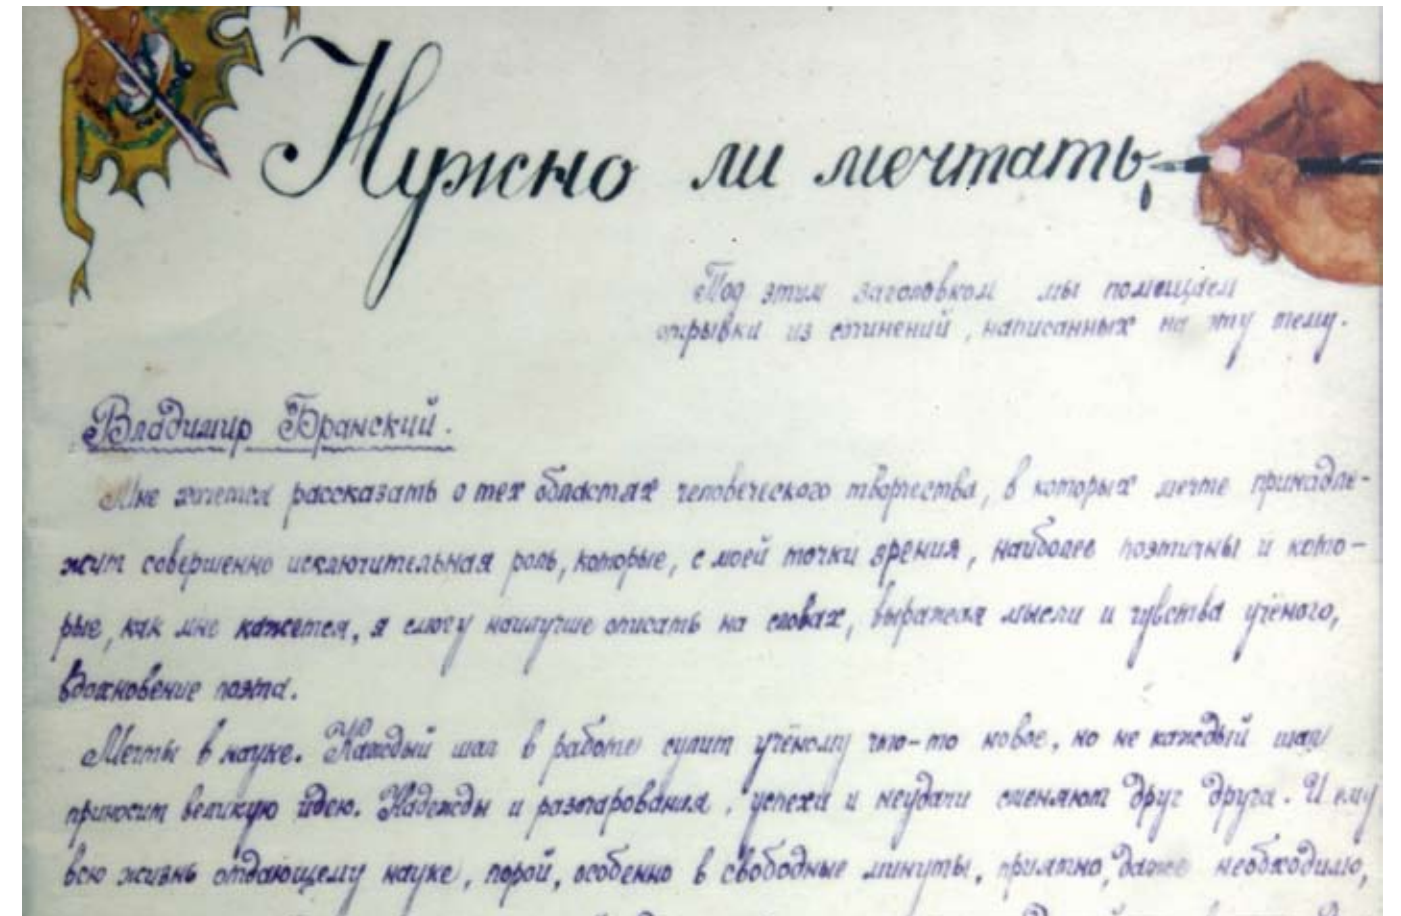 Нужно ли мечтать
Под этим заголовком мы помещаем
отрывки из сочинений, написанных на эту тему.
Владимир Бранский.
Мне хочется рассказать о тех областях человеческого творчества, в которых мечте принадле-
жит совершенно исключительная роль, которые, с моей точки зрения, наиболее поэтичны и кото-
рые, как мне кажется, я смогу наилучше описать на словах, выражая мысли и чувства учёного,
вдохновение поэта.
Мечты в науке. Каждый шаг в работе сулит учёному что-то новое, но не каждый шаг
приносит великую идею. Надежды и разочарования, успехи и неудачи сменяют друг друга. И ему
всю жизнь отдающему науке, порой, особенно в свободные минуты, приятно, даже необходимо,